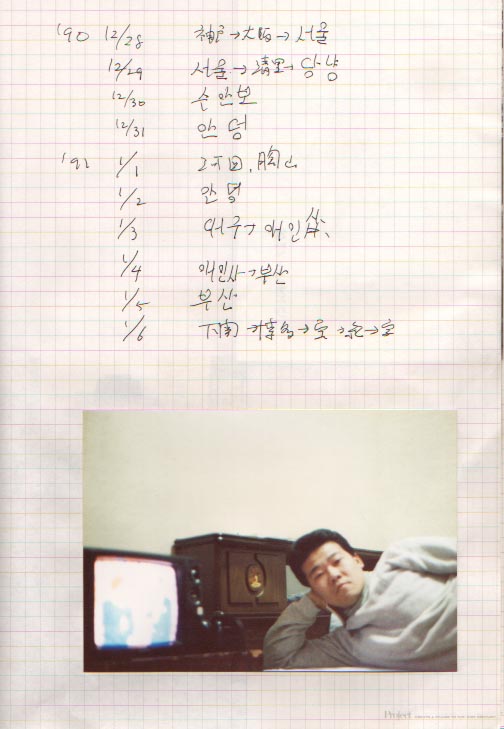 '90 12/28 神戸→大阪→서울
12/29 서울→清里→당냥
12/30 슨안보
12/31 안덩
'91 1/1
1/2 안덩
1/3
1/4 애인사→부산
1/5 부산
1/6 下関→博多→
Project